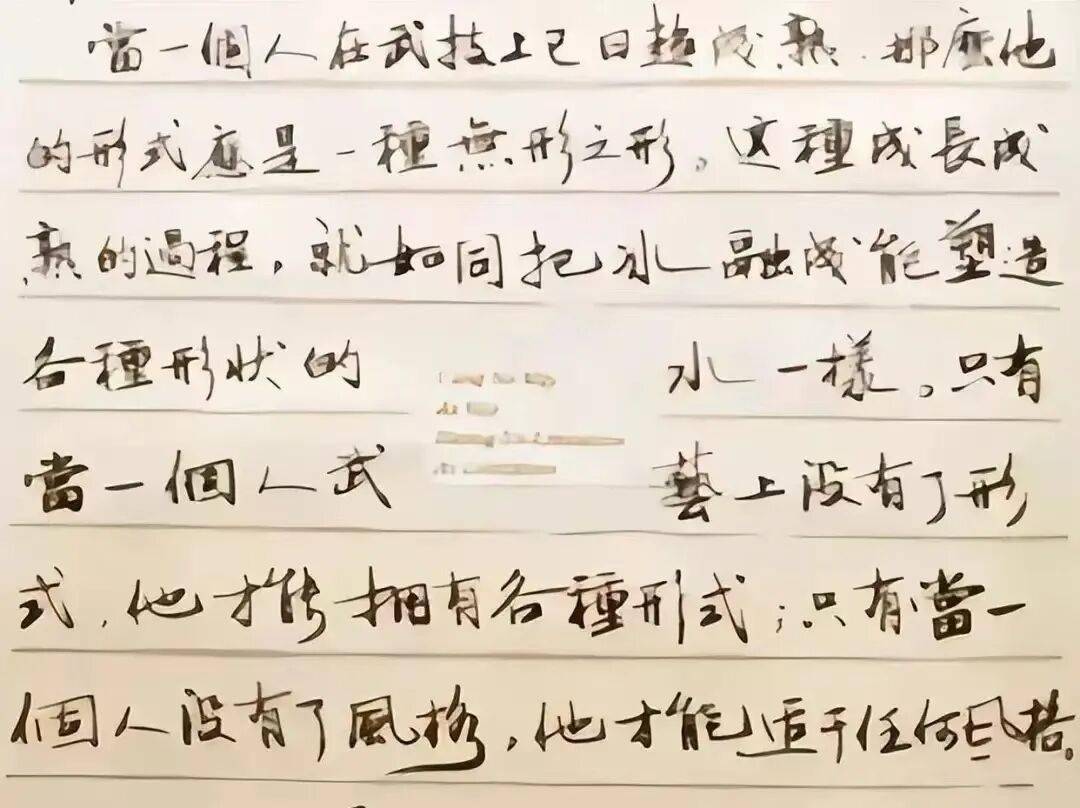 當一個人在武技上已日趨成熟.那麼他
的形式應是一種無形之形。这種成長成
熟的過程,就如同把冰融成能塑造
各種形狀的水一樣。只有
當一個人武藝上没有了形
式,他才能擁有各種形式;只有當一
個人没有了風格,他才能适于任何风格。